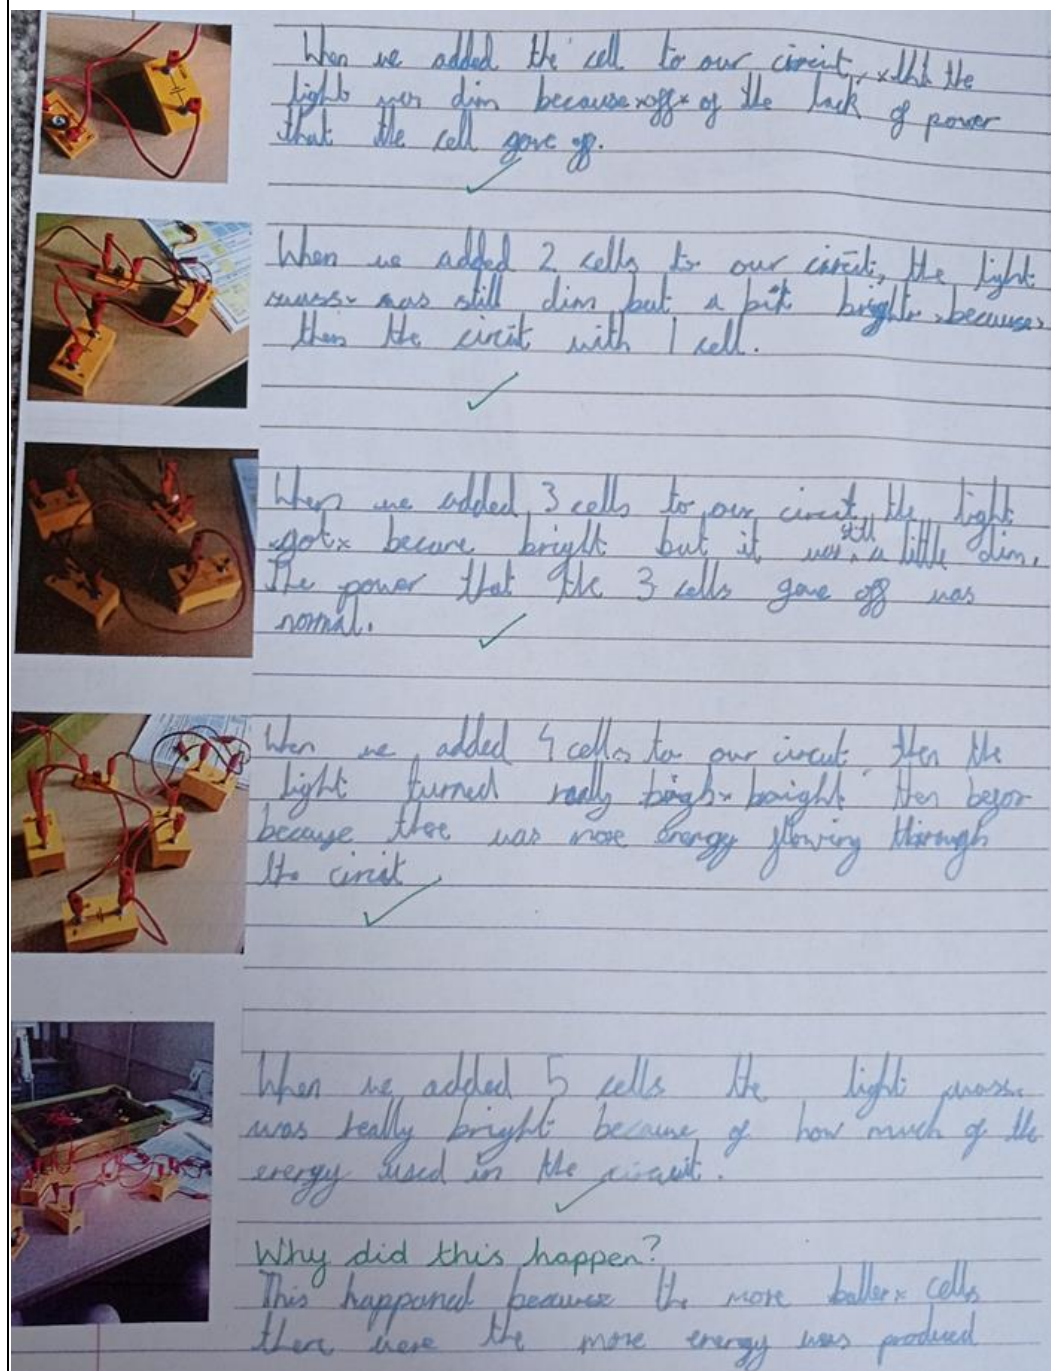 When we added the cell to our circuit, xthtx the
light was dim because xoffx of the lack of power
that the cell gave off.
When we added 2 cells to our circuit, the light
was still dim but a bit bright xbecausex
then the circuit with 1 cell.
When we added 3 cells to our circuit the light
xgotx became bright but it was still a little dim.
The power that the 3 cells gave off was
normal.
When we added 4 cells to our circuit then the
light turned really bright then
because there was more energy flowing through
the circuit
When we added 5 cells the light
was really bright because of how much of the
energy used in the circuit.
Why did this happen?
This happened because the more cells
there were the more energy was produced